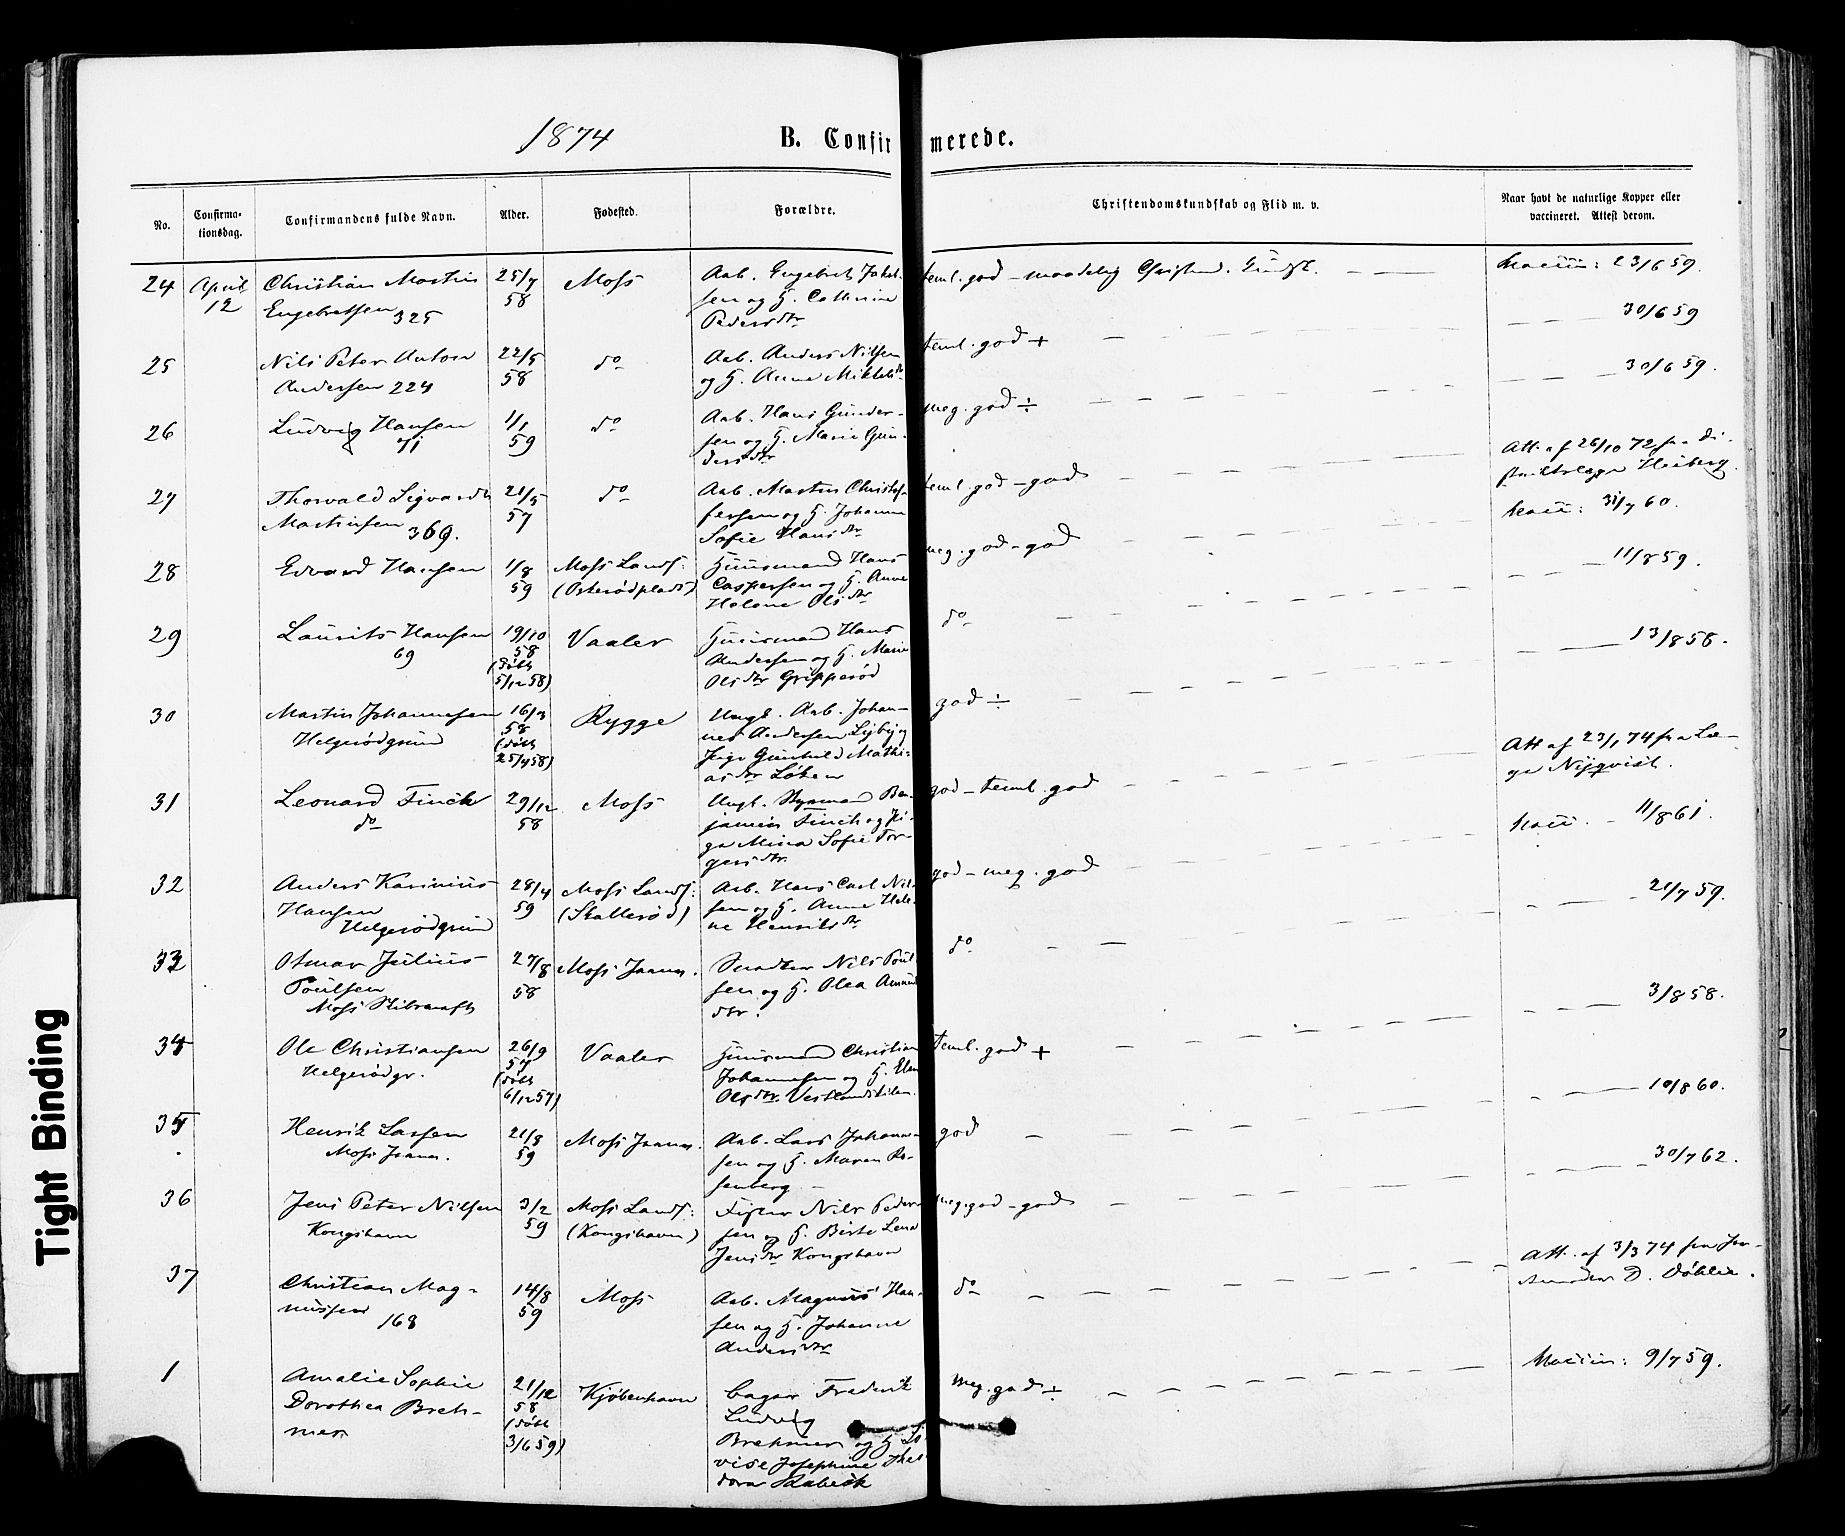 1874
B. Confirmerede.
No.
Confirma-
tionsdag.
Confirmandens fulde Navn.
Alder.
Fødested.
Forældre.
Christendomskundskab og Flid m. v.
Naar havt de naturlige Kopper eller
vaccineret. Attest derom.
24 April 12
Christian Martin
Engebretsen 325
25/7 58
Moss
Aab. Engebret Jakob-
sen og H. Cathrine
Pedersdtr
teml. god - maadelig
23/6 59.
25
Nils Peter Anton
Andersen 224
22/5 58
do
Aab. Anders Nilsen
og H. Anne Mikkelsdtr
teml. god +
30/6 59
26
Ludvig Hansen
71
1/1 59
do
Aab. Hans Gunder-
sen og H. Marie Gun-
dersdtr
meg. god ÷
30/6 59.
27
Thorvald Sigvardt
Martinsen 369.
21/5 57
do
Aab. Martin Christof-
fersen og H. Johanne
Sofie Hansdtr
teml. god - god
Att. af 26/10 72 fra Di-
striktslæge Heiberg.
28
Edvard Hansen
1/8 59
Moss Lands:
(Osterødplads)
Huusmand Hans
Caspersen og H. Anne
Helene Olsdtr
meg. god - god
31/7 60.
29
Laurits Hansen
69
19/10 58
(døbt
5/12 58)
Vaaler
Huusmand Hans
Andersen og H. Marie
Olsdtr Gripperød
do
11/8 59.
30
Martin Johannesen
Helgerødgrund
16/3 58
(døbt
25/4 58)
Rygge
Ungk. Aab. Johan-
nes Andersen
Pige Gunhild Mathi-
asdtr Løken
god ÷
13/8 58.
31
Leonard Finch
do
29/12 58
Moss
Ungk. Styrmand Ben-
jamin Finch og Pi-
ge Mina Sofie Tor-
gersdtr
god - teml. god
Att af 23/1 74 fra Læ-
ge Nyqvist.
32
Anders Karinius
Hansen
Helgerødgrund
28/4 59
Moss Lands:
(Skallerød)
Aab. Hans Carl Nil-
sen og H. Anne Hele-
ne Henriksdtr
god - meg. god
11/8 61.
33
Otmar Julius
Poulsen
27/8 58
Moss
Snedker Nils Poul-
sen og H. Olea Amunds-
dtr.
do
21/7 59.
34
Ole Christiansen
Helgerødgr.
26/9 57
(døbt
6/12 57)
Vaaler
Huusmand Christian
Johannesen og H. Elen
Olsdtr.
teml. god +
3/8 58.
35
Henrik Larsen
21/8 59
Moss
Aab. Lars Johanne-
sen og H. Maren Ro-
senberg
god
10/8 60.
36
Jens Peter Nilsen
Kongshavn
3/2 59
Moss Lands:
(Kongshavn)
Fisker Nils Peder-
sen og H. Birte Lena
Jensdtr Kongshavn
meg. god - god
30/7 62.
37
Christian Mag-
nussen
168
14/8 59
Moss
Aab. Magnus Han-
sen og H. Johanne
Andersdtr
do
Att. af 3/3 74 fra Jor-
1
Amalie Sophie
Dorothea Breh-
mer
21/12 58
(døbt
3/6 59)
Kjøbenhavn
Bager Frederik
Ludvig
Brehmer og H. Lo-
vise Josephine Theo-
dora Rabeck
meg. god ÷
9/7 59.
Tight Binding